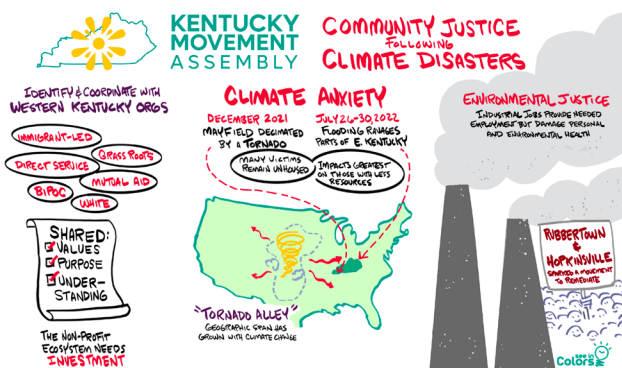 KENTUCKY
MOVEMENT
ASSEMBLY
COMMUNITY JUSTICE
FOLLOWING
CLIMATE DISASTERS
IDENTIFY & COORDINATE WITH
WESTERN KENTUCKY ORGS
IMMIGRANT-LED
GRASS ROOTS
DIRECT SERVICE
MUTUAL AID
BIPOC
WHITE
SHARED:
VALUES
PURPOSE
UNDER-
STANDING
THE NON-PROFIT
ECOSYSTEM NEEDS
INVESTMENT
CLIMATE ANXIETY
DECEMBER 2021
MAYFIELD DECIMATED
BY A TORNADO
JULY 26-30, 2022
FLOODING RAVAGES
PARTS OF E. KENTUCKY
MANY VICTIMS
REMAIN UNHOUSED
IMPACTS GREATEST
ON THOSE WITH LESS
RESOURCES
"TORNADO ALLEY"
GEOGRAPHIC SPAN HAS
GROWN WITH CLIMATE CHANGE
ENVIRONMENTAL JUSTICE
INDUSTRIAL JOBS PROVIDE NEEDED
EMPLOYMENT BUT DAMAGE PERSONAL
AND ENVIRONMENTAL HEALTH
RUBBERTOWN
&
HOPKINSVILLE
SPARKED A MOVEMENT
TO REMEDIATE
see in
Colors